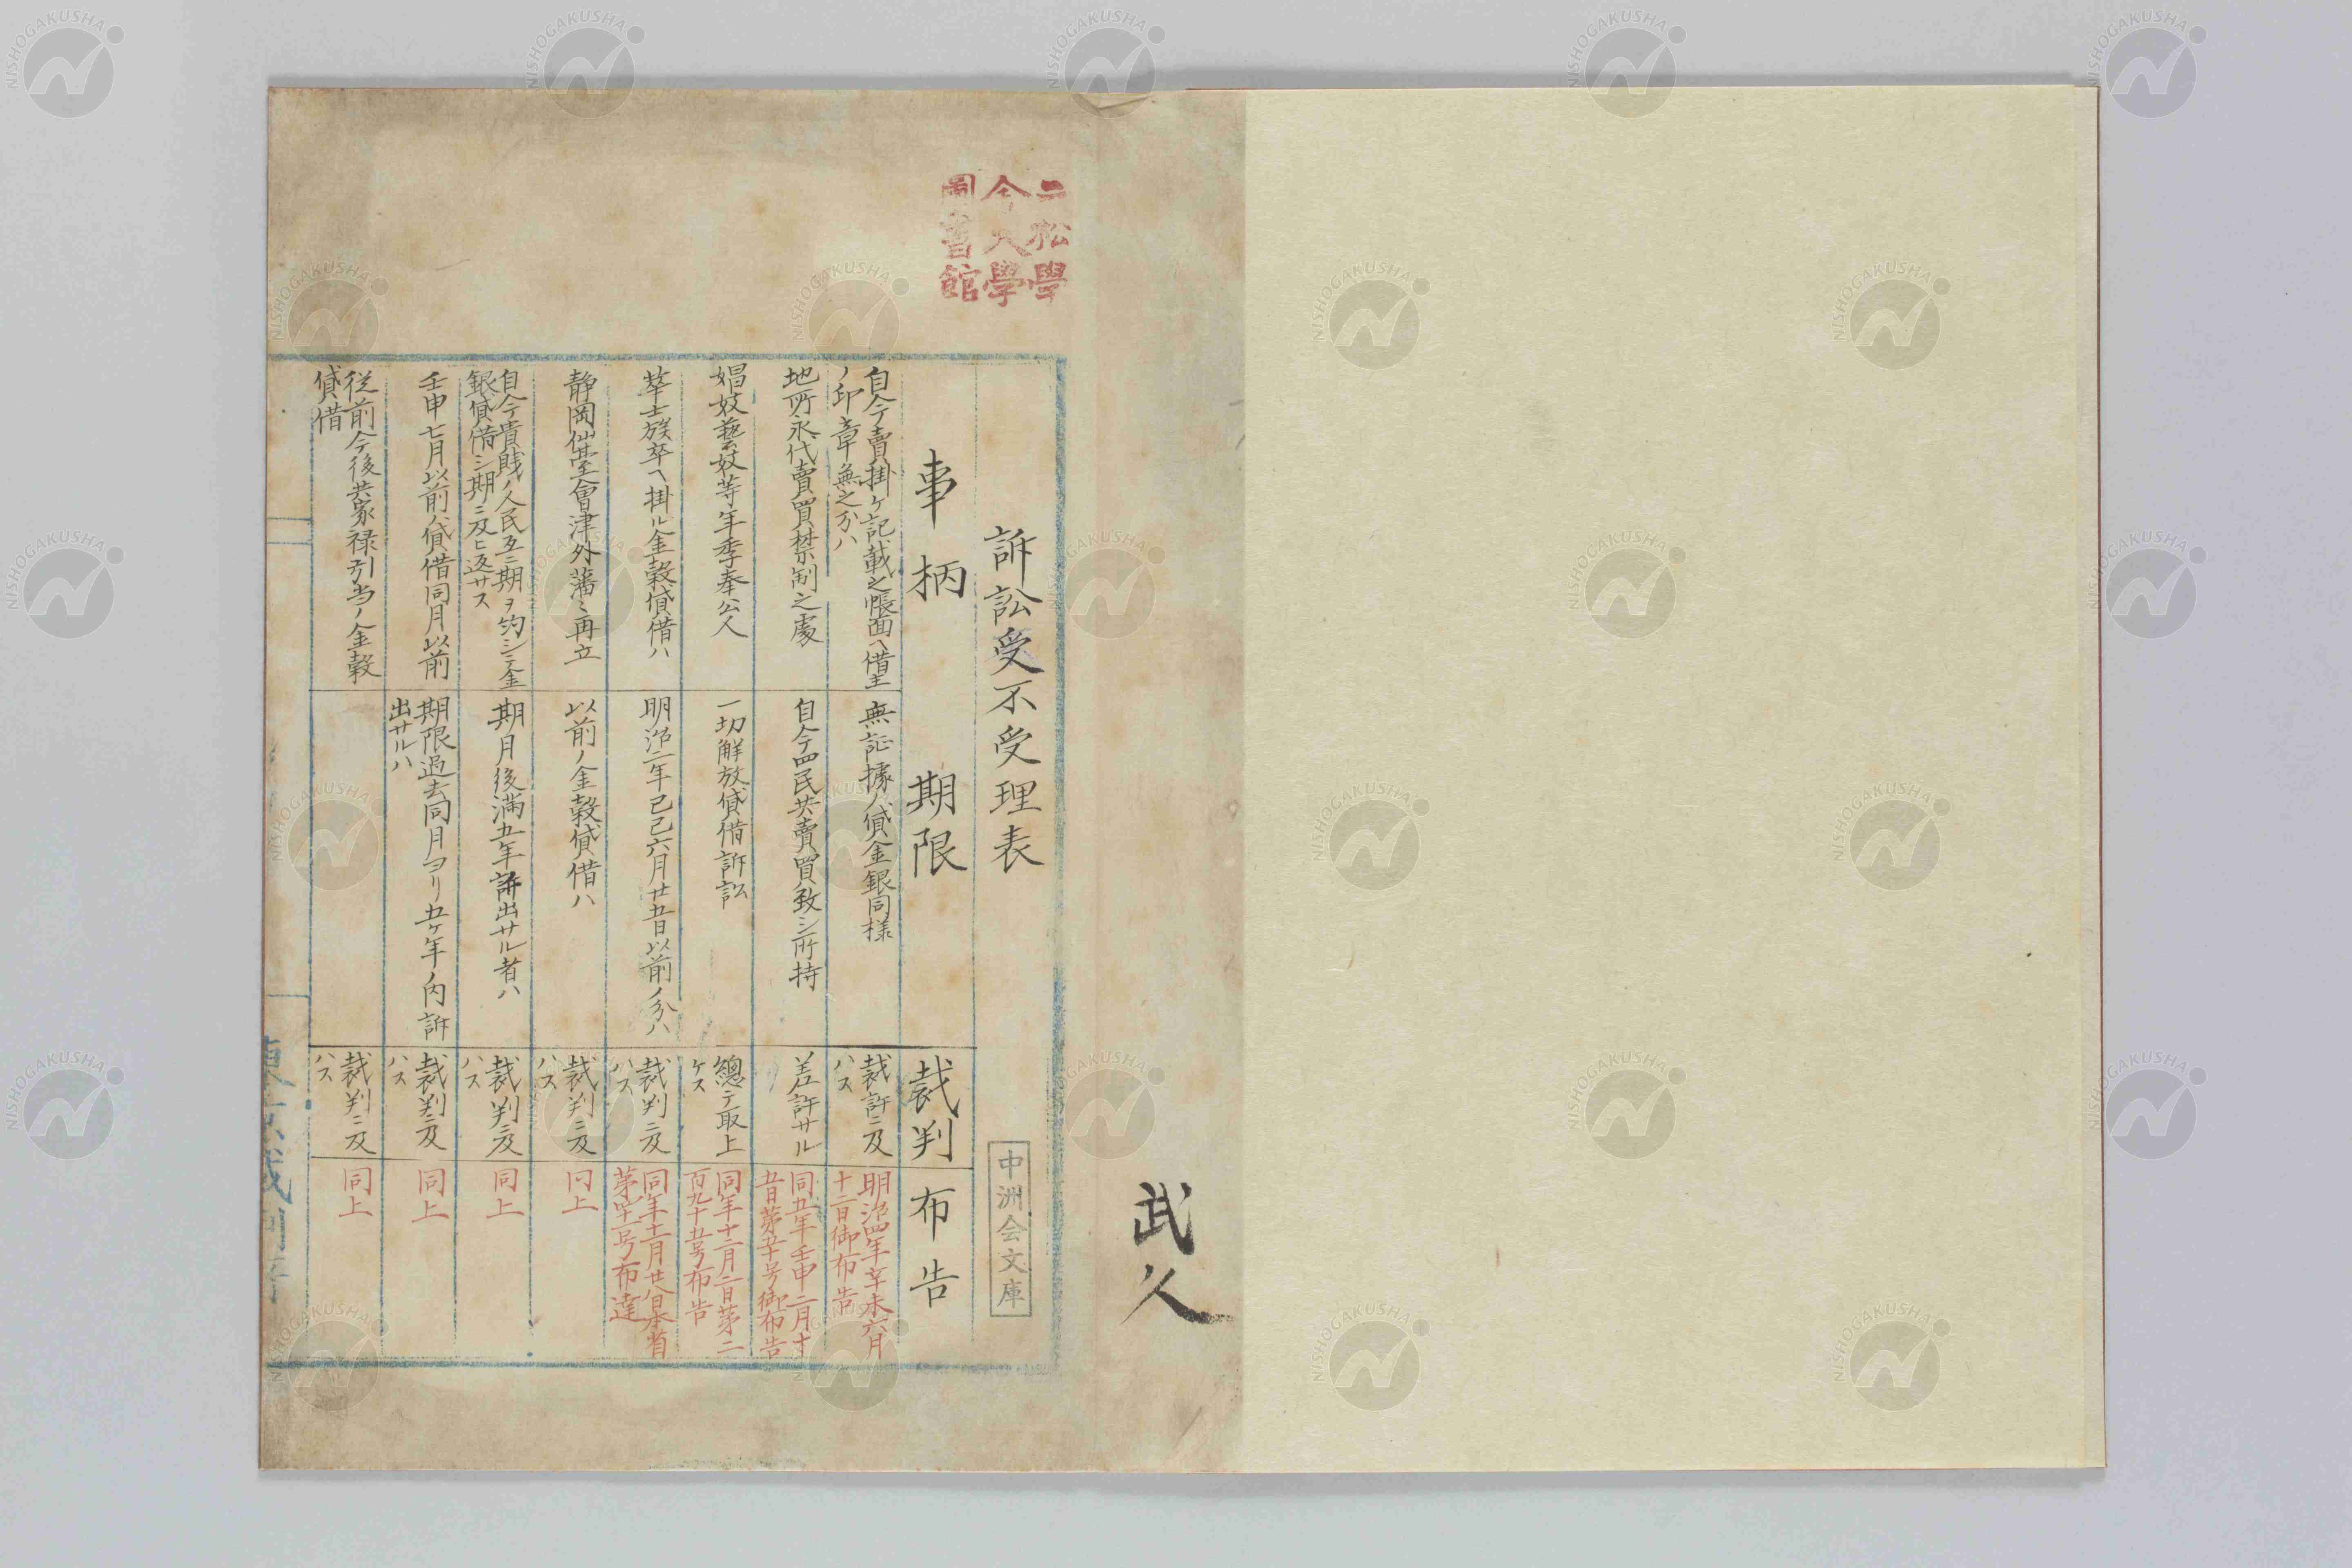 武久
二松學
舎大學
圖書館
訴訟受不受理表
中洲会文庫
事柄
期限
裁判
布告
自今賣掛ケ記載之帳面ヘ借主
ノ印章無之分ハ
無証據ノ貸金銀同様
裁許ニ及
ハス
明治四年辛未六月
十二日御布告
地所永代賣買禁制之處
自今四民共賣買致シ所持
差許サル
同五年壬申二月十
五日第五十号御布告
娼妓藝妓等年季奉公人
一切解放貸借訴訟
總テ取上
ケス
同年十一月二日第二
百九十五号布告
華士族卒ヘ掛ル金穀貸借ハ
明治二年己巳六月廿五日以前ノ分ハ
裁判ニ及
ハス
同年十一月廿八日本省
第四十一号布達
静岡斗南會津外藩々再立
以前ノ金穀貸借ハ
裁判ニ及
ハス
同上
自今貴賎ノ人民互ニ期ヲ約シテ金
銀貸借シ期ニ及ヒ返サス
期月後満五年訴出サル者ハ
裁判ニ及
ハス
同上
壬申七月以前ノ貸借同月以前
期限過去同月ヨリ五ケ年ノ内訴
出サルハ
裁判ニ及
ハス
同上
従前今後共家禄引当ノ金穀
貸借
裁判ニ及
ハス
同上
NISHOGAKUSHA